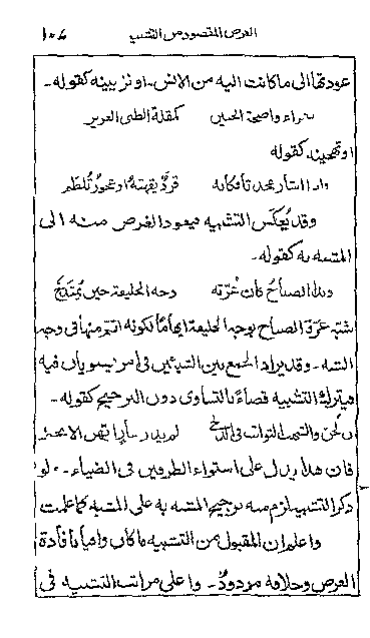 الغرض المقصود من التشبيه ١٠٨
عودتها الى ما كانت اليه من الانس - او تزيينه كقوله -
سوداء واضحة الجبين كمقلة الظبى الغرير
او تهجينه كقوله
واذا اشار محدثا فكانه قرد يقهقه او عجوز تلطم
وقد يُعكس التشبيه فيعود الغرض منه الى
المشبه به كقوله -
وبدا الصباح كأن غرّته وجه الخليفة حين يمتدح
شبّه غرّة الصباح بوجه الخليفة ايهاماً لكونه اتم منها فى وجه
الشبه - وقد يراد الجمع بين الشيئين فى امر يسويان فيه
فيترك التشبيه قصداً بالتساوى دون الترجيح كقوله -
والشهب الثواقب فى الدجى
فان هذا يدل على استواء الطرفين فى الضياء - ولو
ذكر التشبيه لزم منه ترجيح المشبه به على المشبه كما علمت
واعلم ان المقبول من التشبيه ما كان وافياً بافادة
الغرض وخلافه مردودٌ - واعلى مراتب التشبيه فى